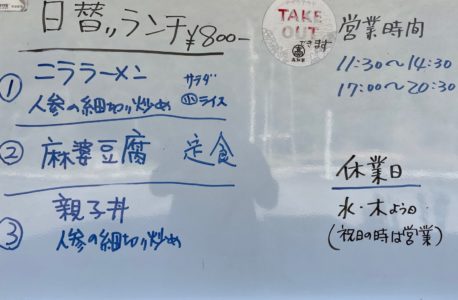 日替〃ランチ ¥800-
① ニララーメン サラダ
人参の細切り炒め ㊙ライス
② 麻婆豆腐 定食
③ 親子丼
人参の細切り炒め
TAKE
OUT
できます
営業時間
11:30〜14:30
17:00〜20:30
休業日
水・木よう日
(祝日の時は営業)